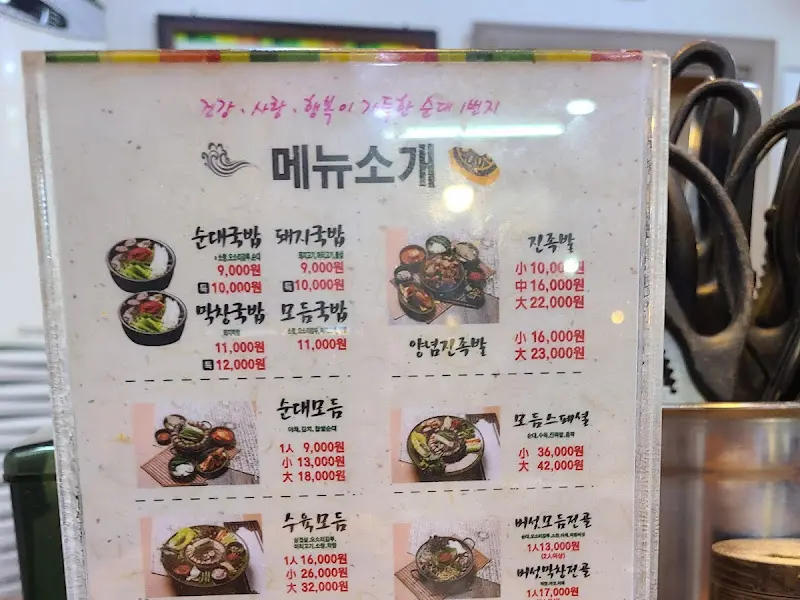 건강·사랑·행복이 가득한 순대1번지
메뉴소개
순대국밥
9,000원
특 10,000원
돼지국밥
9,000원
특 10,000원
막창국밥
11,000원
특 12,000원
모듬국밥
11,000원
진족발
小 10,000원
中 16,000원
大 22,000원
양념진족발
小 16,000원
大 23,000원
순대모듬
야채,김치,찹쌀순대
1人 9,000원
小 13,000원
大 18,000원
모듬스페셜
小 36,000원
大 42,000원
수육모듬
1人 16,000원
小 26,000원
大 32,000원
버섯모듬전골
1人 13,000원
(2人이상)
버섯막창전골
1人 17,000원